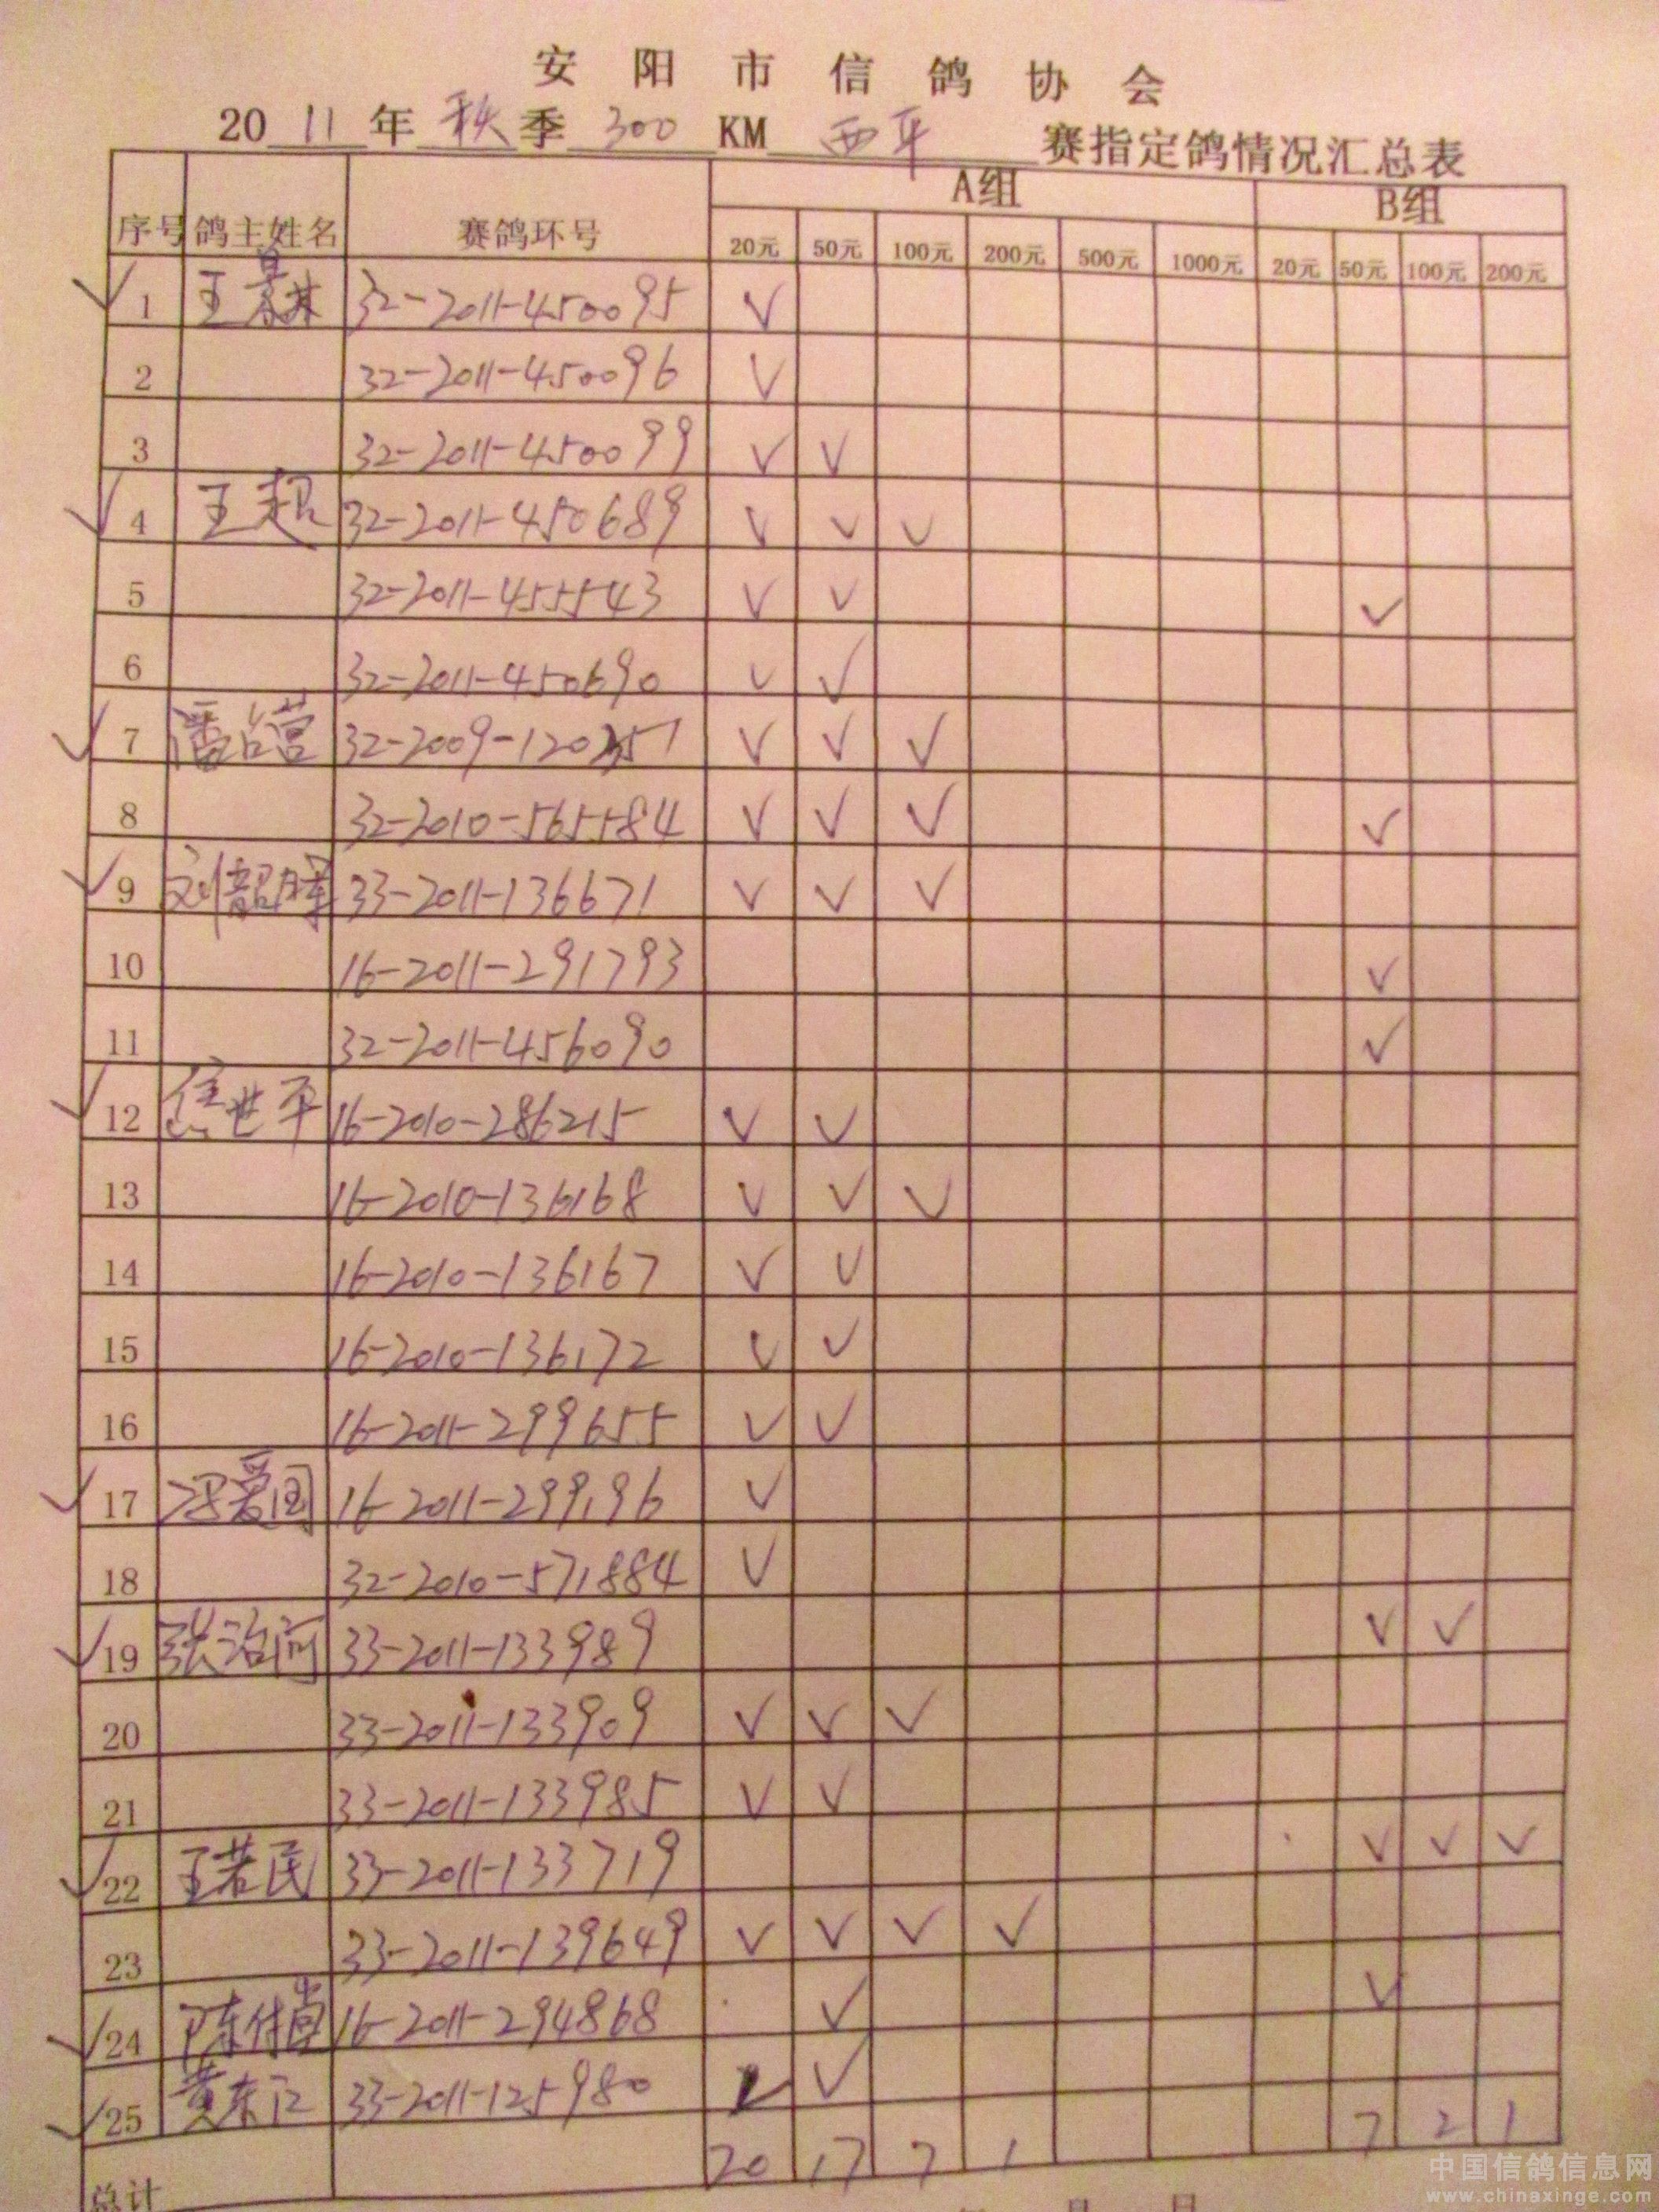 安阳市信鸽协会
2011年秋季300 KM西平 赛指定鸽情况汇总表
序号 鸽主姓名 赛鸽环号 A组 B组
20元 50元 100元 200元 500元 1000元 20元 50元 100元 200元
✓ 1 王 32-2011-450095 ✓
2 32-2011-450096 ✓
3 32-2011-450099 ✓ ✓
✓ 4 王超 32-2011-450689 ✓ ✓ ✓
5 32-2011-455543 ✓ ✓ ✓
6 32-2011-450690 ✓ ✓
✓ 7 潘治营 32-2009-120 ✓ ✓ ✓
8 32-2010-565584 ✓ ✓ ✓ ✓
✓ 9 刘韶 33-2011-136671 ✓ ✓ ✓
10 16-2011-291793 ✓
11 32-2011-456090 ✓
✓ 12 焦世平 16-2010-286215 ✓ ✓
13 16-2010-136168 ✓ ✓ ✓
14 16-2010-136167 ✓ ✓
15 16-2010-136172 ✓ ✓
16 16-2011-299655 ✓ ✓
✓ 17 冯爱国 16-2011-299196 ✓
18 32-2010-571884 ✓
✓ 19 张治河 33-2011-133989 ✓ ✓
20 33-2011-133909 ✓ ✓ ✓
21 33-2011-133985 ✓ ✓
✓ 22 王若民 33-2011-133719 ✓ ✓ ✓
23 33-2011-139649 ✓ ✓ ✓ ✓
✓ 24 陈付 16-2011-294868 ✓ ✓
✓ 25 黄东江 33-2011-125980 ✓ ✓
总计 20 17 7 1 7 2 1
年 月 日
中国信鸽信息网
www.chinaxinge.com